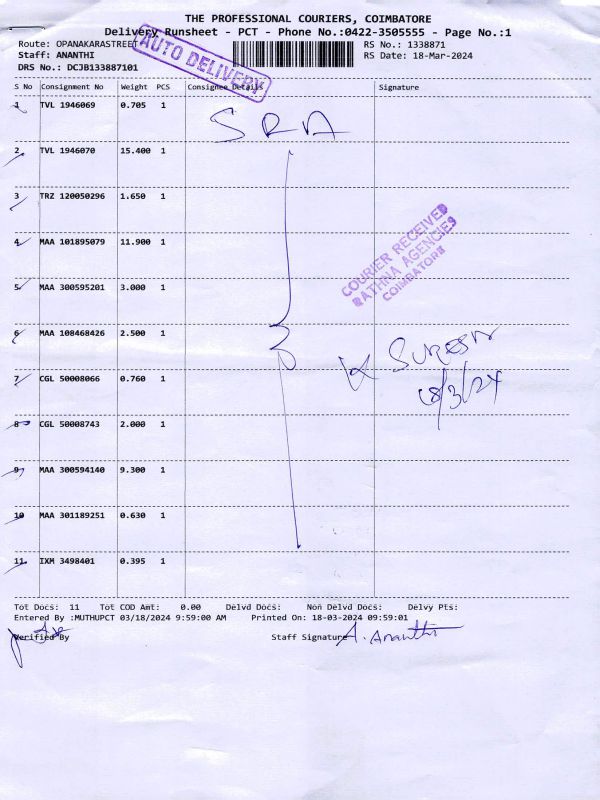 THE PROFESSIONAL COURIERS, COIMBATORE
Delivery Runsheet - PCT - Phone No.:0422-3505555 - Page No.:1
Route: OPANAKARASTREET
RS No.: 1338871
AUTO DELIVERY
Staff: ANANTHI
RS Date: 18-Mar-2024
DRS No.: DCJB133887101
S No Consignment No Weight PCS Consignee Details Signature
1 TVL 1946069 0.705 1
SRA
2 TVL 1946070 15.400 1
3 TRZ 120050296 1.650 1
4 MAA 101895079 11.900 1
COURIER RECEIVED
RATHNA AGENCIES
COIMBATORE
5 MAA 300595201 3.000 1
6 MAA 108468426 2.500 1
SURESH
18/3/24
7 CGL 50008066 0.760 1
8 CGL 50008743 2.000 1
9 MAA 300594140 9.300 1
10 MAA 301189251 0.630 1
11 IXM 3498401 0.395 1
Tot Docs: 11 Tot COD Amt: 0.00 Delvd Docs: Non Delvd Docs: Delvy Pts:
Entered By :MUTHUPCT 03/18/2024 9:59:00 AM Printed On: 18-03-2024 09:59:01
Verified By Staff Signature A. Ananthi